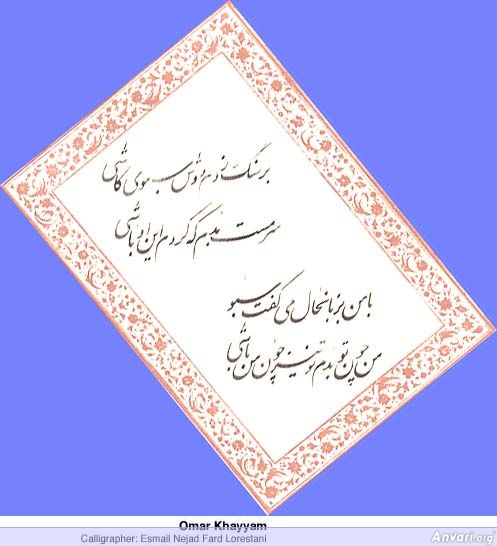 بر سنگ زدم دوش سبوی کاشی
سرمست بدم که کردم این اوباشی
با من بزبانحال می گفت سبو
من چون تو بدم تو نیز چون من باشی
Omar Khayyam
Calligrapher: Esmail Nejad Fard Lorestani
Anvari.org